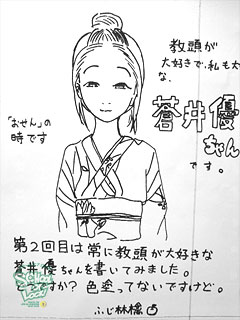 教頭が
大好きで、私も大好き
な、
蒼井優
ちゃん
です。
「おせん」の
時です
第2回目は常に教頭が大好きな
蒼井優ちゃんを書いてみました。
どうですか？色塗ってないですけど。
ふじ林檎